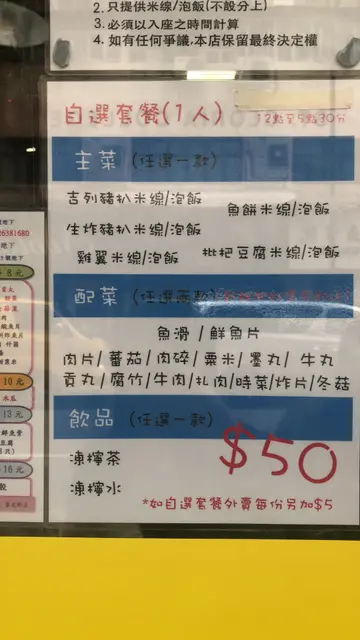 2. 只提供米線/泡飯(不設分上)
3. 必須以入座之時間計算
4. 如有任何爭議,本店保留最終決定權
自選套餐(1人)
12點至5點30分
主菜 (任選一款)
吉列豬扒米線/泡飯
魚餅米線/泡飯
生炸豬扒米線/泡飯
雞翼米線/泡飯 枇杷豆腐米線/泡飯
配菜 (任選兩款)
魚滑/鮮魚片
肉片/蕃茄/肉碎/粟米/墨丸/牛丸
貢丸/腐竹/牛肉/扎肉/時菜/炸片/冬菇
飲品 (任選一款)
凍檸茶
凍檸水
$50
*如自選套餐外賣每份另加$5
26381680
8元
10元
木瓜
13元
16元